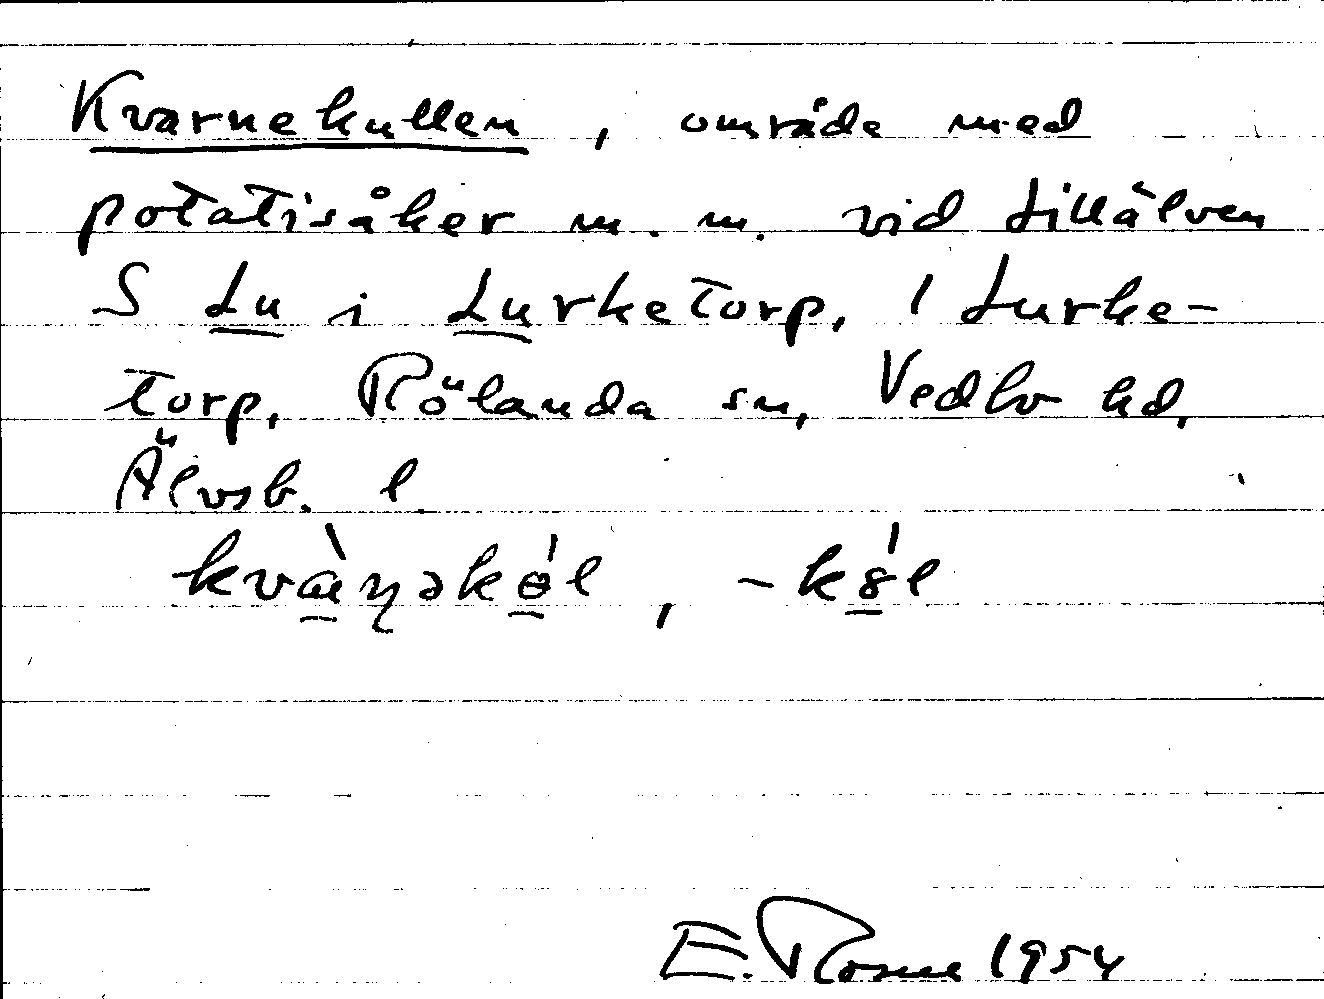 Kvarnekullen, område med
potatisåker m. m. vid Lillälven
S Lu i Lurketorp, 1 Lurke-
torp, Rölanda sn, Vedbo hd,
Älvsb. l.
kvàɳəkɵ́l, -kȣ́l
E. Rosne 1954